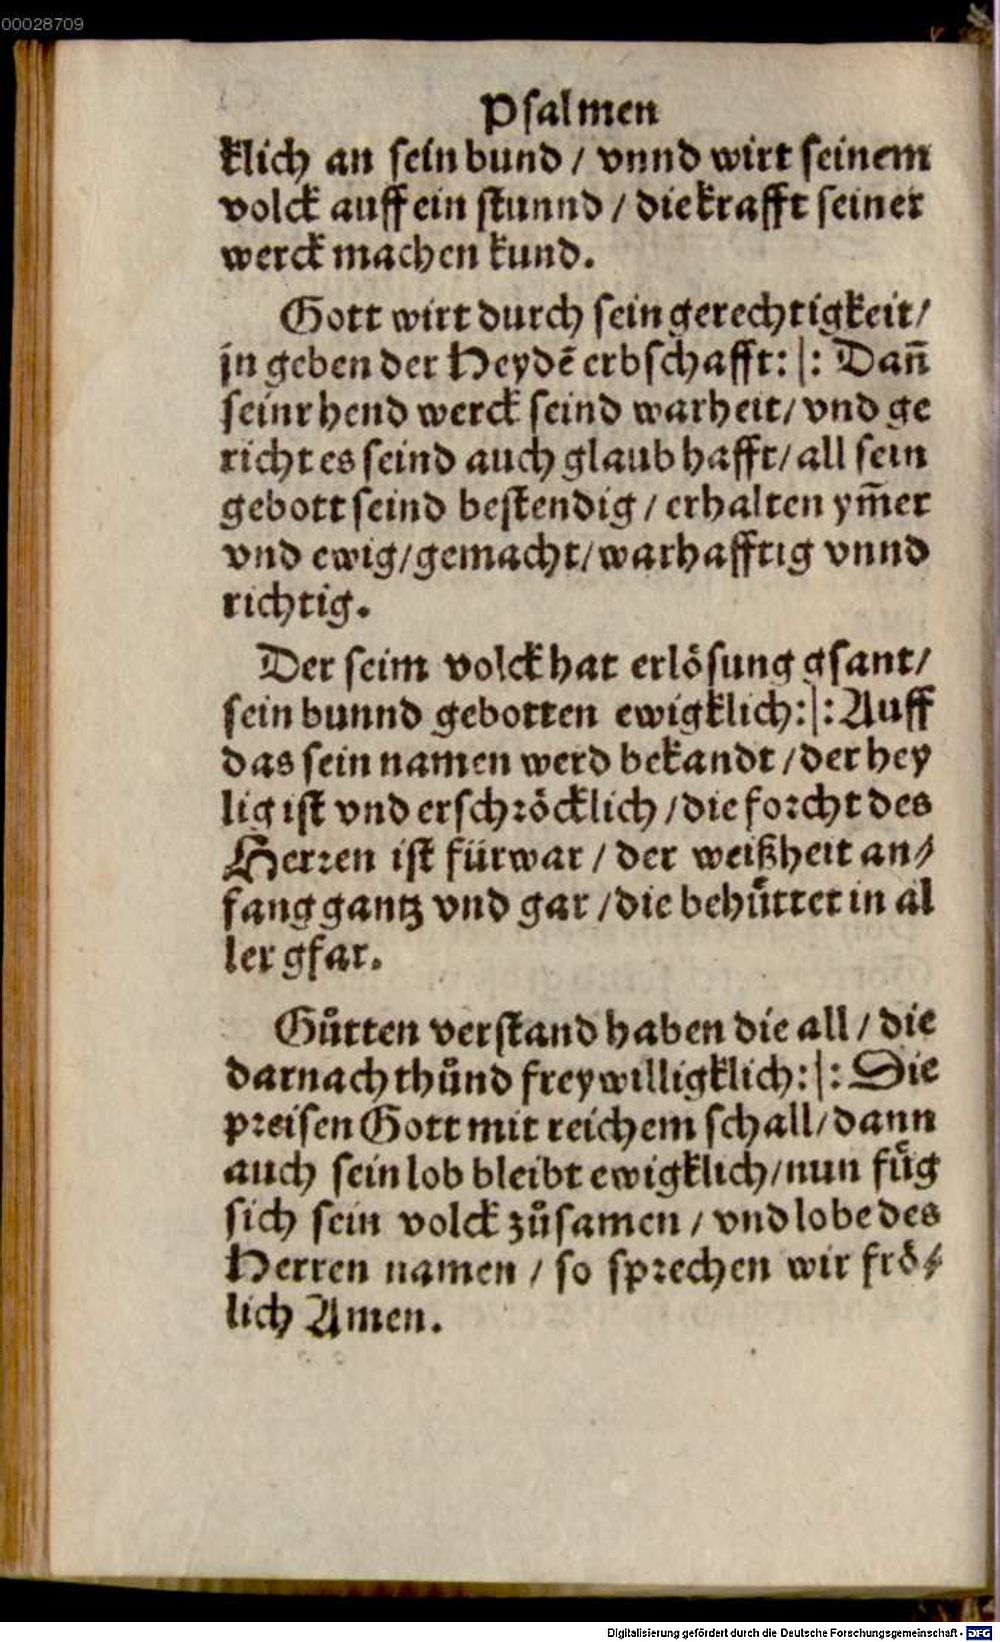 00028709
Psalmen
klich an sein bund / vnnd wirt seinem
volck auff ein stunnd / die krafft seiner
werck machen kund.
Gott wirt durch sein gerechtigkeit /
jn geben der Heydē erbschafft: |: Dan̄
seinr hend werck seind warheit / vnd ge
richt es seind auch glaubhafft / all sein
gebott seind bestendig / erhalten ym̄er
vnd ewig / gemacht / warhafftig vnnd
richtig.
Der seim volck hat erlösung gsant /
sein bunnd gebotten ewigklich: |: Auff
das sein namen werd bekandt / der hey
lig ist vnd erschröcklich / die forcht des
Herren ist fürwar / der weißheit an⸗
fang gantz vnd gar / die behüttet in al
ler gfar.
Gůtten verstand haben die all / die
darnach thůnd freywilligklich: |: Sie
preisen Gott mit reichem schall / dann
auch sein lob bleibt ewigklich / nun fuͤg
sich sein volck zůsamen / vnd lobe des
Herren namen / so sprechen wir frö⸗
lich Amen.
Digitalisierung gefördert durch die Deutsche Forschungsgemeinschaft - DFG